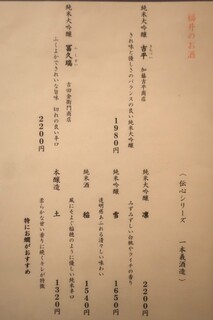 福井のお酒
純米大吟醸 吉平 加藤吉平商店
きれ味と優しさのバランスの良い純米大吟醸
1980円
純米大吟醸 富久瑞 吉田金衛門商店
ふくよかできれいな旨味 切れの良い辛口
2200円
（伝心シリーズ 一本義酒造）
純米大吟醸 凛 2200円
みずみずしい白桃やライチの香り
純米吟醸 雪 1650円
透明感あふれる清々しい味わい
純米酒 稲 1540円
風にそよぐ稲穂のように優しい純米辛口
本醸造 土 1320円
柔らかな甘い香りに軽く
特にお燗がおすすめ